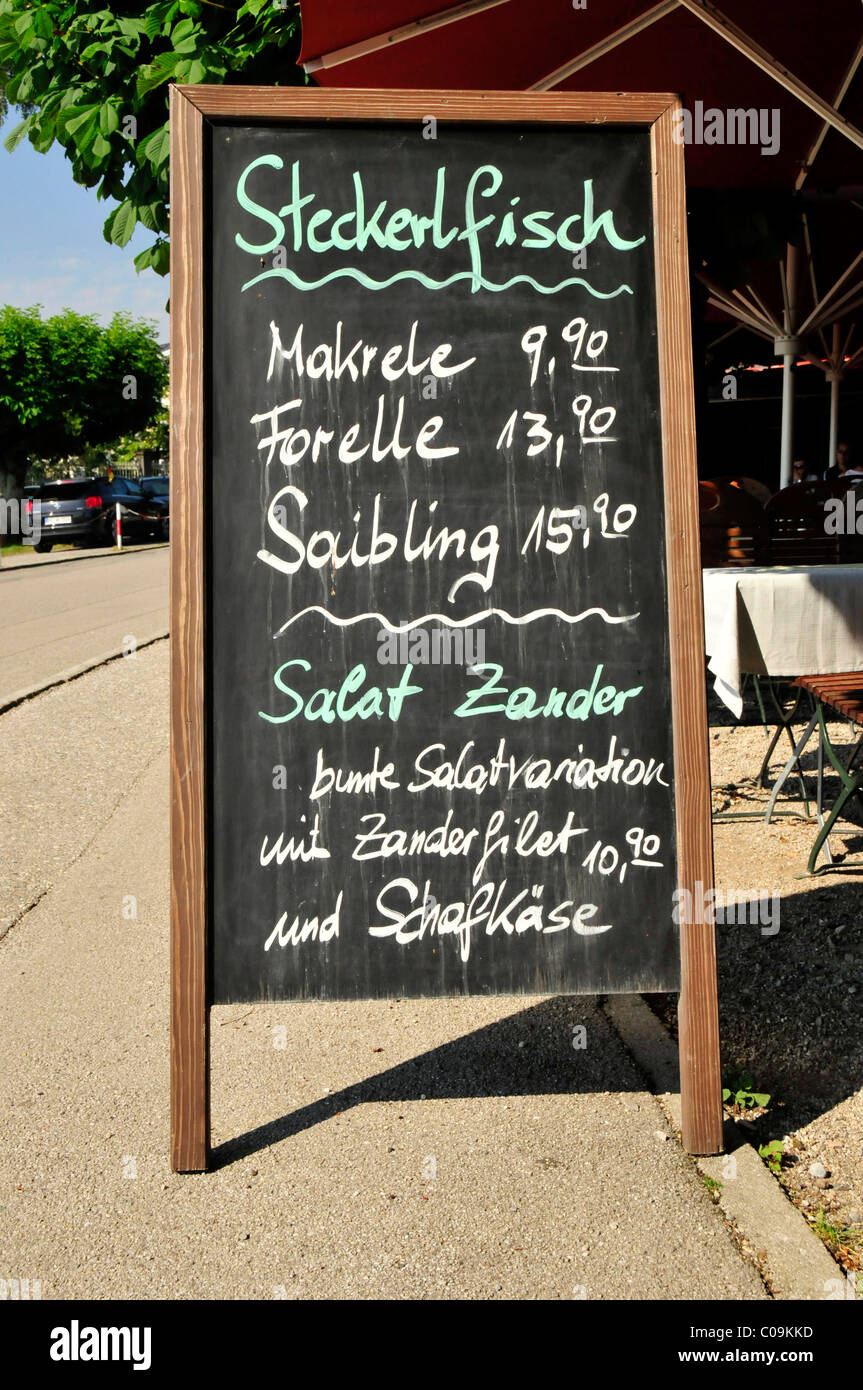 Steckerlfisch
Makrele 9,90
Forelle 13,90
Saibling 15,90
Salat Zander
bunte Salatvariation
mit Zanderfilet 10,90
und Schafkäse
alamy
Image ID: C09KKD
www.alamy.com